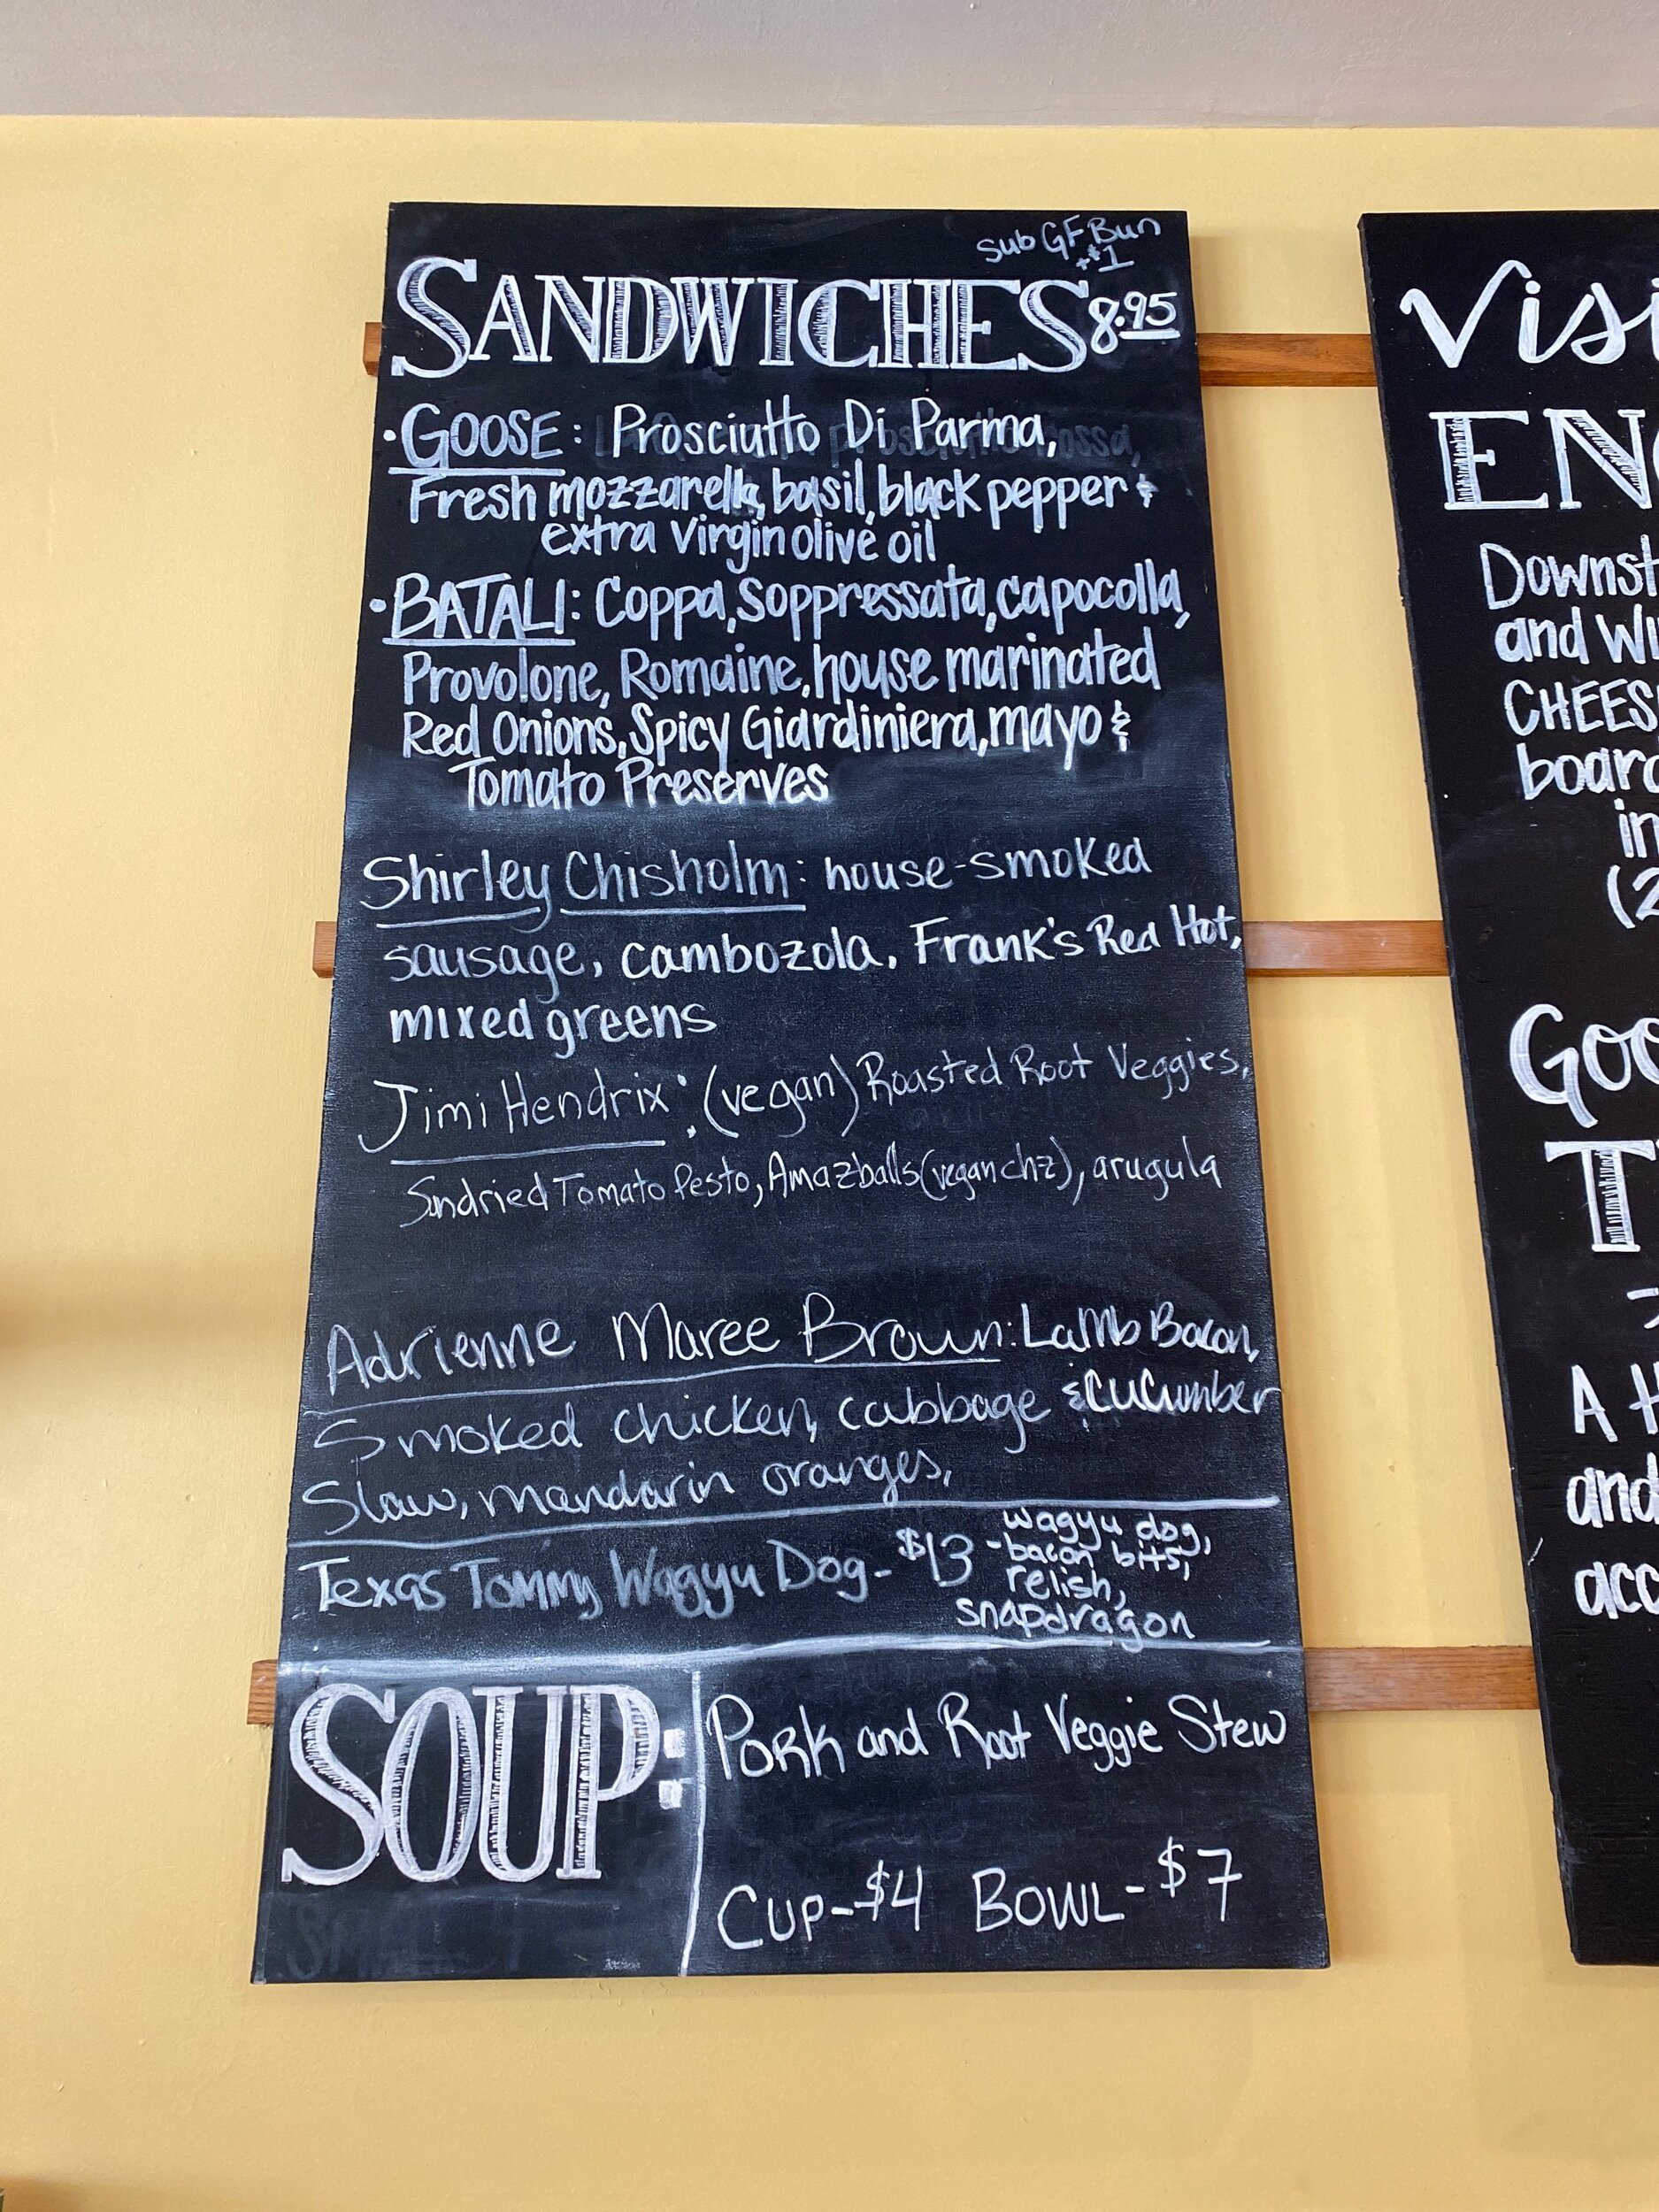 sub GF Bun
+$1
SANDWICHES 8.95
• GOOSE: Prosciutto Di Parma,
Fresh mozzarella, basil, black pepper &
extra virgin olive oil
• BATALI: Coppa, Soppressata, capocolla,
Provolone, Romaine, house marinated
Red Onions, Spicy Giardiniera, mayo &
Tomato Preserves
Shirley Chisholm: house-smoked
sausage, cambozola, Frank's Red Hot,
mixed greens
Jimi Hendrix: (vegan) Roasted Root Veggies,
Sundried Tomato Pesto, Amazballs (vegan chz), arugula
Adrienne Maree Brown: Lamb Bacon,
Smoked chicken, cabbage & cucumber
Slaw, mandarin oranges,
Texas Tommy Wagyu Dog - $13 - wagyu dog,
bacon bits,
relish,
snapdragon
SOUP: Pork and Root Veggie Stew
CUP - $4 BOWL - $7
Visi
EN
Downst
and Wi
CHEES
board
in
(2
Goo
T
A H
and
acc